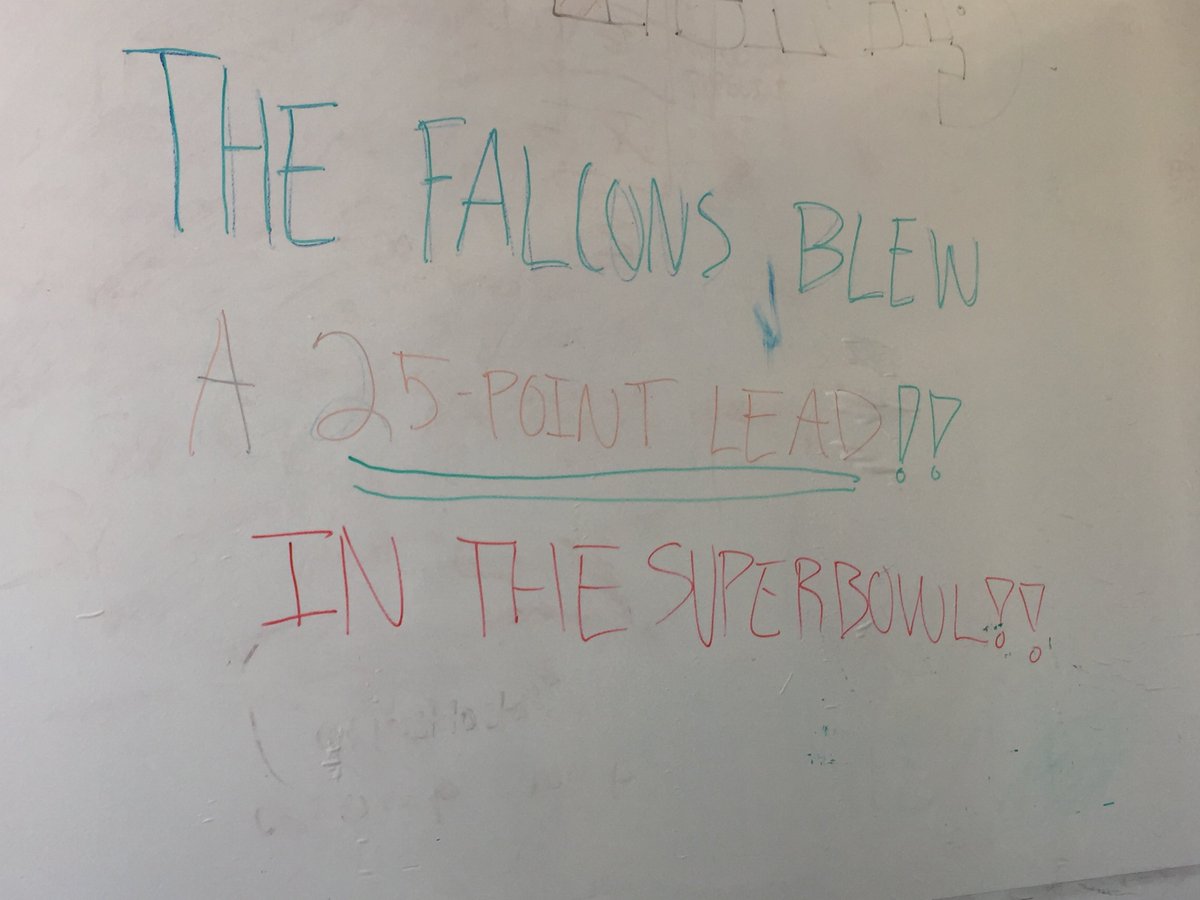 THE FALCONS BLEW
A 25-POINT LEAD!!
IN THE SUPERBOWL!!